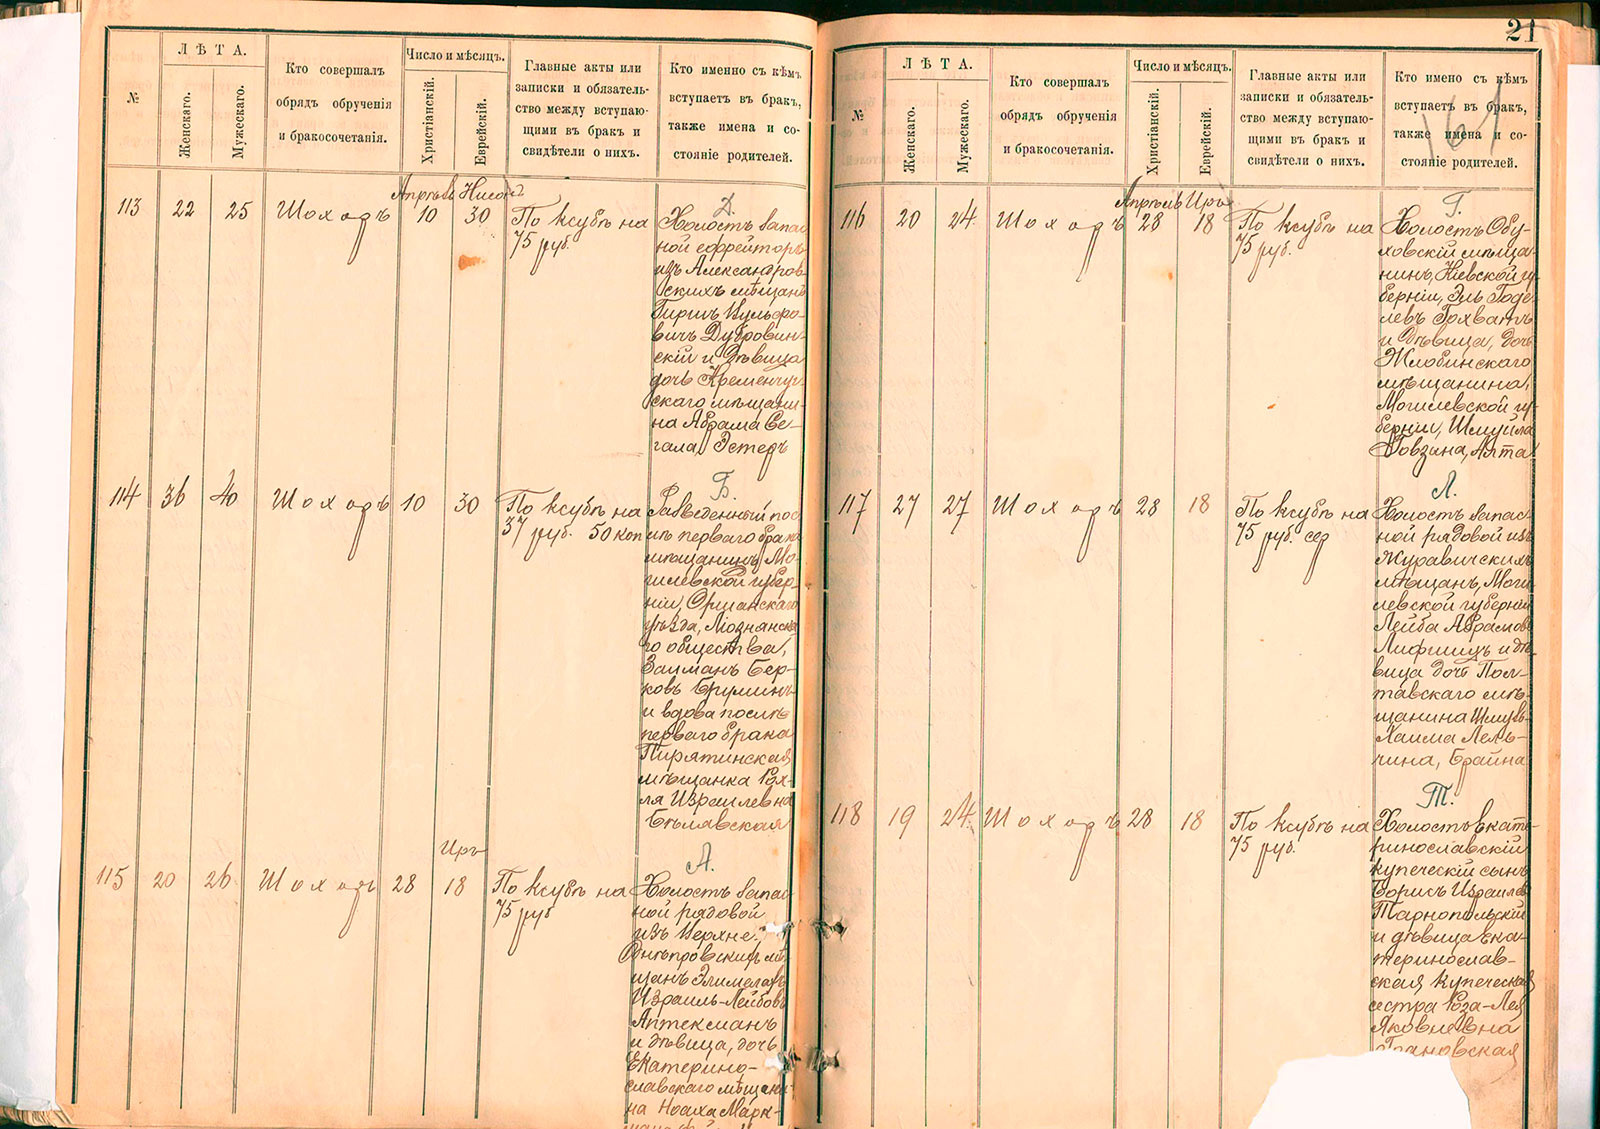 №
ЛѢТА.
Женскаго.
Мужескаго.
Кто совершалъ
обрядъ обрученія
и бракосочетанія.
Число и мѣсяцъ.
Христіанскій.
Еврейскій.
Главные акты или
записки и обязатель-
ство между вступаю-
щими въ бракъ и
свидѣтели о нихъ.
Кто именно съ кѣмъ
вступаетъ въ бракъ,
также имена и со-
стояніе родителей.
Апрѣль
113 22 25 Шохоръ 10 30 По ксубѣ на
75 руб.
Д.
Холостъ запас
ной ефрейторъ
изъ Александров-
скихъ мѣщанъ
Гиршъ Вульфо-
вичъ Дубровин-
скій и дѣвица
дочь Кременчуг-
скаго мѣщани-
на Абрама Се-
гала, Эстеръ
114 36 40 Шохоръ 10 30 По ксубѣ на
37 руб. 50 коп
Б.
Разведенный пос
лѣ перваго брака
мѣщанинъ Мо-
гилевской губер-
ніи, Оршанскаго
уѣзда, Люзнянска
го общества,
Залманъ Бер-
ковъ Бруминъ
и вдова послѣ
перваго брака
Пирятинская
мѣщанка Рох-
ля Израилевна
Бѣлявская
Иръ
115 20 26 Шохоръ 28 18 По ксубѣ на
75 руб
А.
Холостъ запас
ной рядовой
изъ Верхне-
Днѣпровскихъ мѣ
щанъ Элимелехъ
Израиль-Лейбовъ
Аптекманъ
и дѣвица, дочь
Екатерино-
славскаго мѣщани-
на Ноаха Марк-
21
161
№
ЛѢТА.
Женскаго.
Мужескаго.
Кто совершалъ
обрядъ обрученія
и бракосочетанія.
Число и мѣсяцъ.
Христіанскій.
Еврейскій.
Главные акты или
записки и обязатель-
ство между вступаю-
щими въ бракъ и
свидѣтели о нихъ.
Кто имено съ кѣмъ
вступаетъ въ бракъ,
также имена и со-
стояніе родителей.
Апрѣль Иръ
116 20 24 Шохоръ 28 18 По ксубѣ на
75 руб.
Г.
Холостъ Обу-
ховскій мѣща-
нинъ, Кіевской гу-
берніи, Эль Годе-
левъ Гохватъ
и дѣвица, дочь
Жлобинскаго
мѣщанина,
Могилевской гу-
берніи, Шмуйла
Ровзина, Алта
117 27 27 Шохоръ 28 18 По ксубѣ на
75 руб. сер
Л.
Холостъ запас-
ной рядовой изъ
Журавичскихъ
мѣщанъ, Моги
левской губерніи
Лейба Абрамовъ
Лифшицъ и дѣ-
вица дочь Пол-
тавскаго мѣ-
щанина Шмуль-
Хаима Лель-
чина, Брайна
118 19 24 Шохоръ 28 18 По ксубѣ на
75 руб.
Т.
Холостъ екате-
ринославскій
купеческій сынъ
Борисъ Израилев
Тарнопольскій
и дѣвица ека-
теринослав-
ская купеческая
сестра Роза-Лея
Яковлевна
Грановская